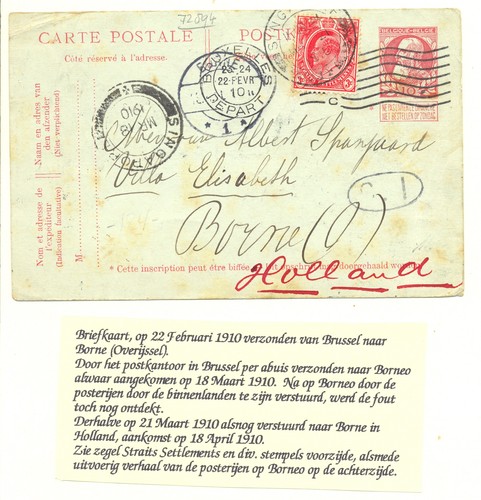 72894
CARTE POSTALE
POSTKAART
Côté réservé à l'adresse.
BELGIQUE·BELGIË
BRUXELLES
23-24
22·FEVR
1910
DEPART
1
STRAITS SETTLEMENTS
NE PAS LIVRER LE DIMANCHE
NIET BESTELLEN OP ZONDAG
C
SINGAPORE
MR 18
1910
Naam en adres van
den afzender
(Niet verplichtend)
Nom et adresse de
l'expéditeur
(Indication facultative)
M
Mevrouw Albert Spanjaard
Villa Elisabeth
Borne (O)
* Cette inscription peut être biffée
opschrift mag doorgehaald worden
Holland
Briefkaart, op 22 Februari 1910 verzonden van Brussel naar
Borne (Overijssel).
Door het postkantoor in Brussel per abuis verzonden naar Borneo
alwaar aangekomen op 18 Maart 1910. Na op Borneo door de
posterijen door de binnenlanden te zijn verstuurd, werd de fout
toch nog ontdekt.
Derhalve op 21 Maart 1910 alsnog verstuurd naar Borne in
Holland, aankomst op 18 April 1910.
Zie zegel Straits Settlements en div. stempels voorzijde, alsmede
uitvoerig verhaal van de posterijen op Borneo op de achterzijde.